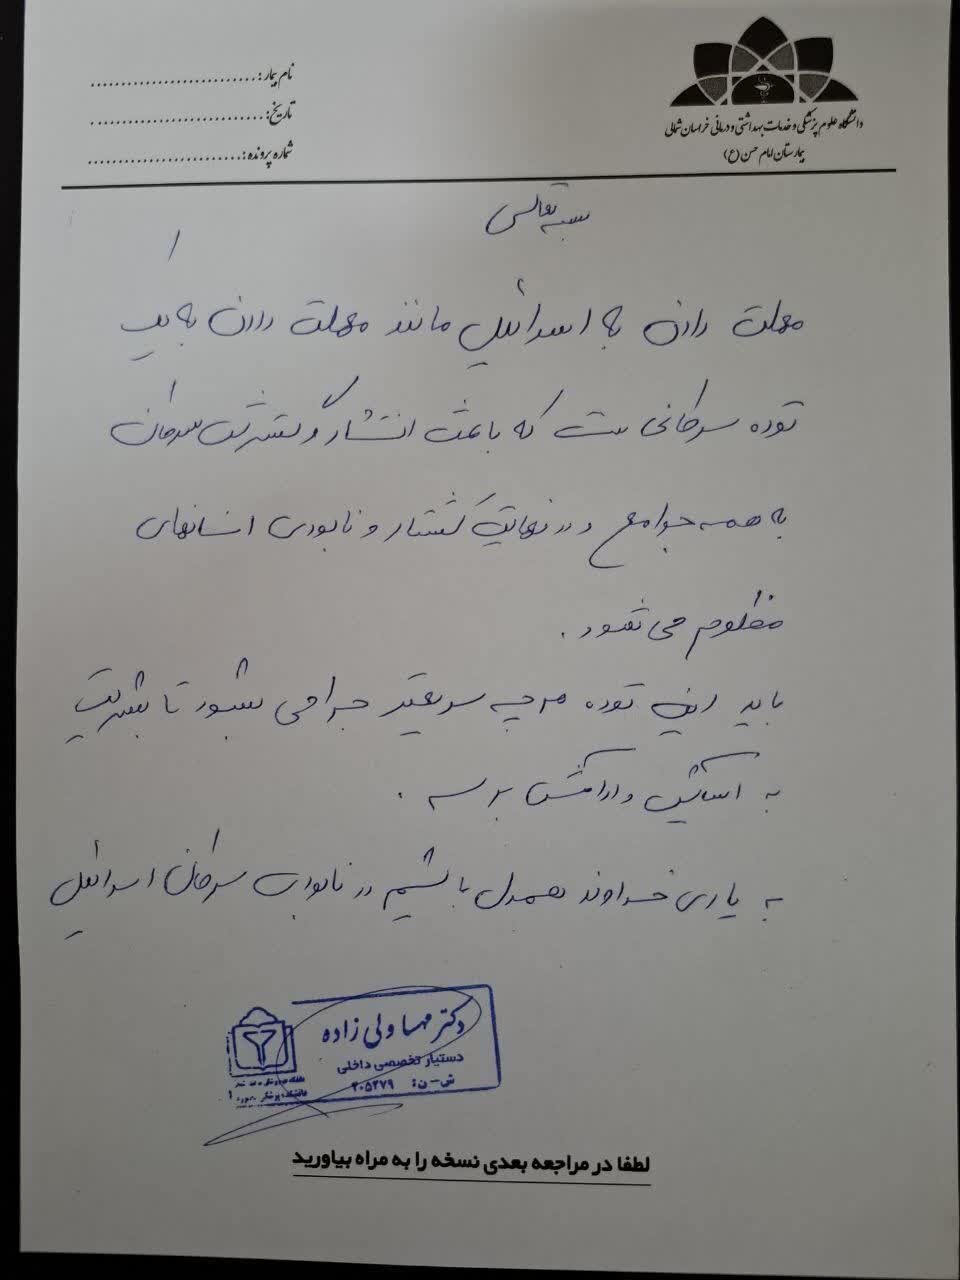 دانشگاه علوم پزشکی و خدمات بهداشتی و درمانی خراسان شمالی
بیمارستان امام حسن (ع)
نام بیمار:
تاریخ:
شماره پرونده:
بسمه تعالی
مهلت دادن به اسرائیل مانند مهلت دادن به یک
توده سرطانی ست که باعث انتشار و گسترش سرطان
به همه جوامع و در نهایت کشتار و نابودی انسانهای
مظلوم می شود.
باید این توده هرچه سریعتر جراحی بشود تا بشریت
به آسایش و آرامش برسد.
به یاری خداوند همدل باشیم در نابودی سرطان اسرائیل
دکتر مهسا ولی زاده
دستیار تخصصی داخلی
ش-ن: ۲۰۵۲۷۹
لطفا در مراجعه بعدی نسخه را به همراه بیاورید